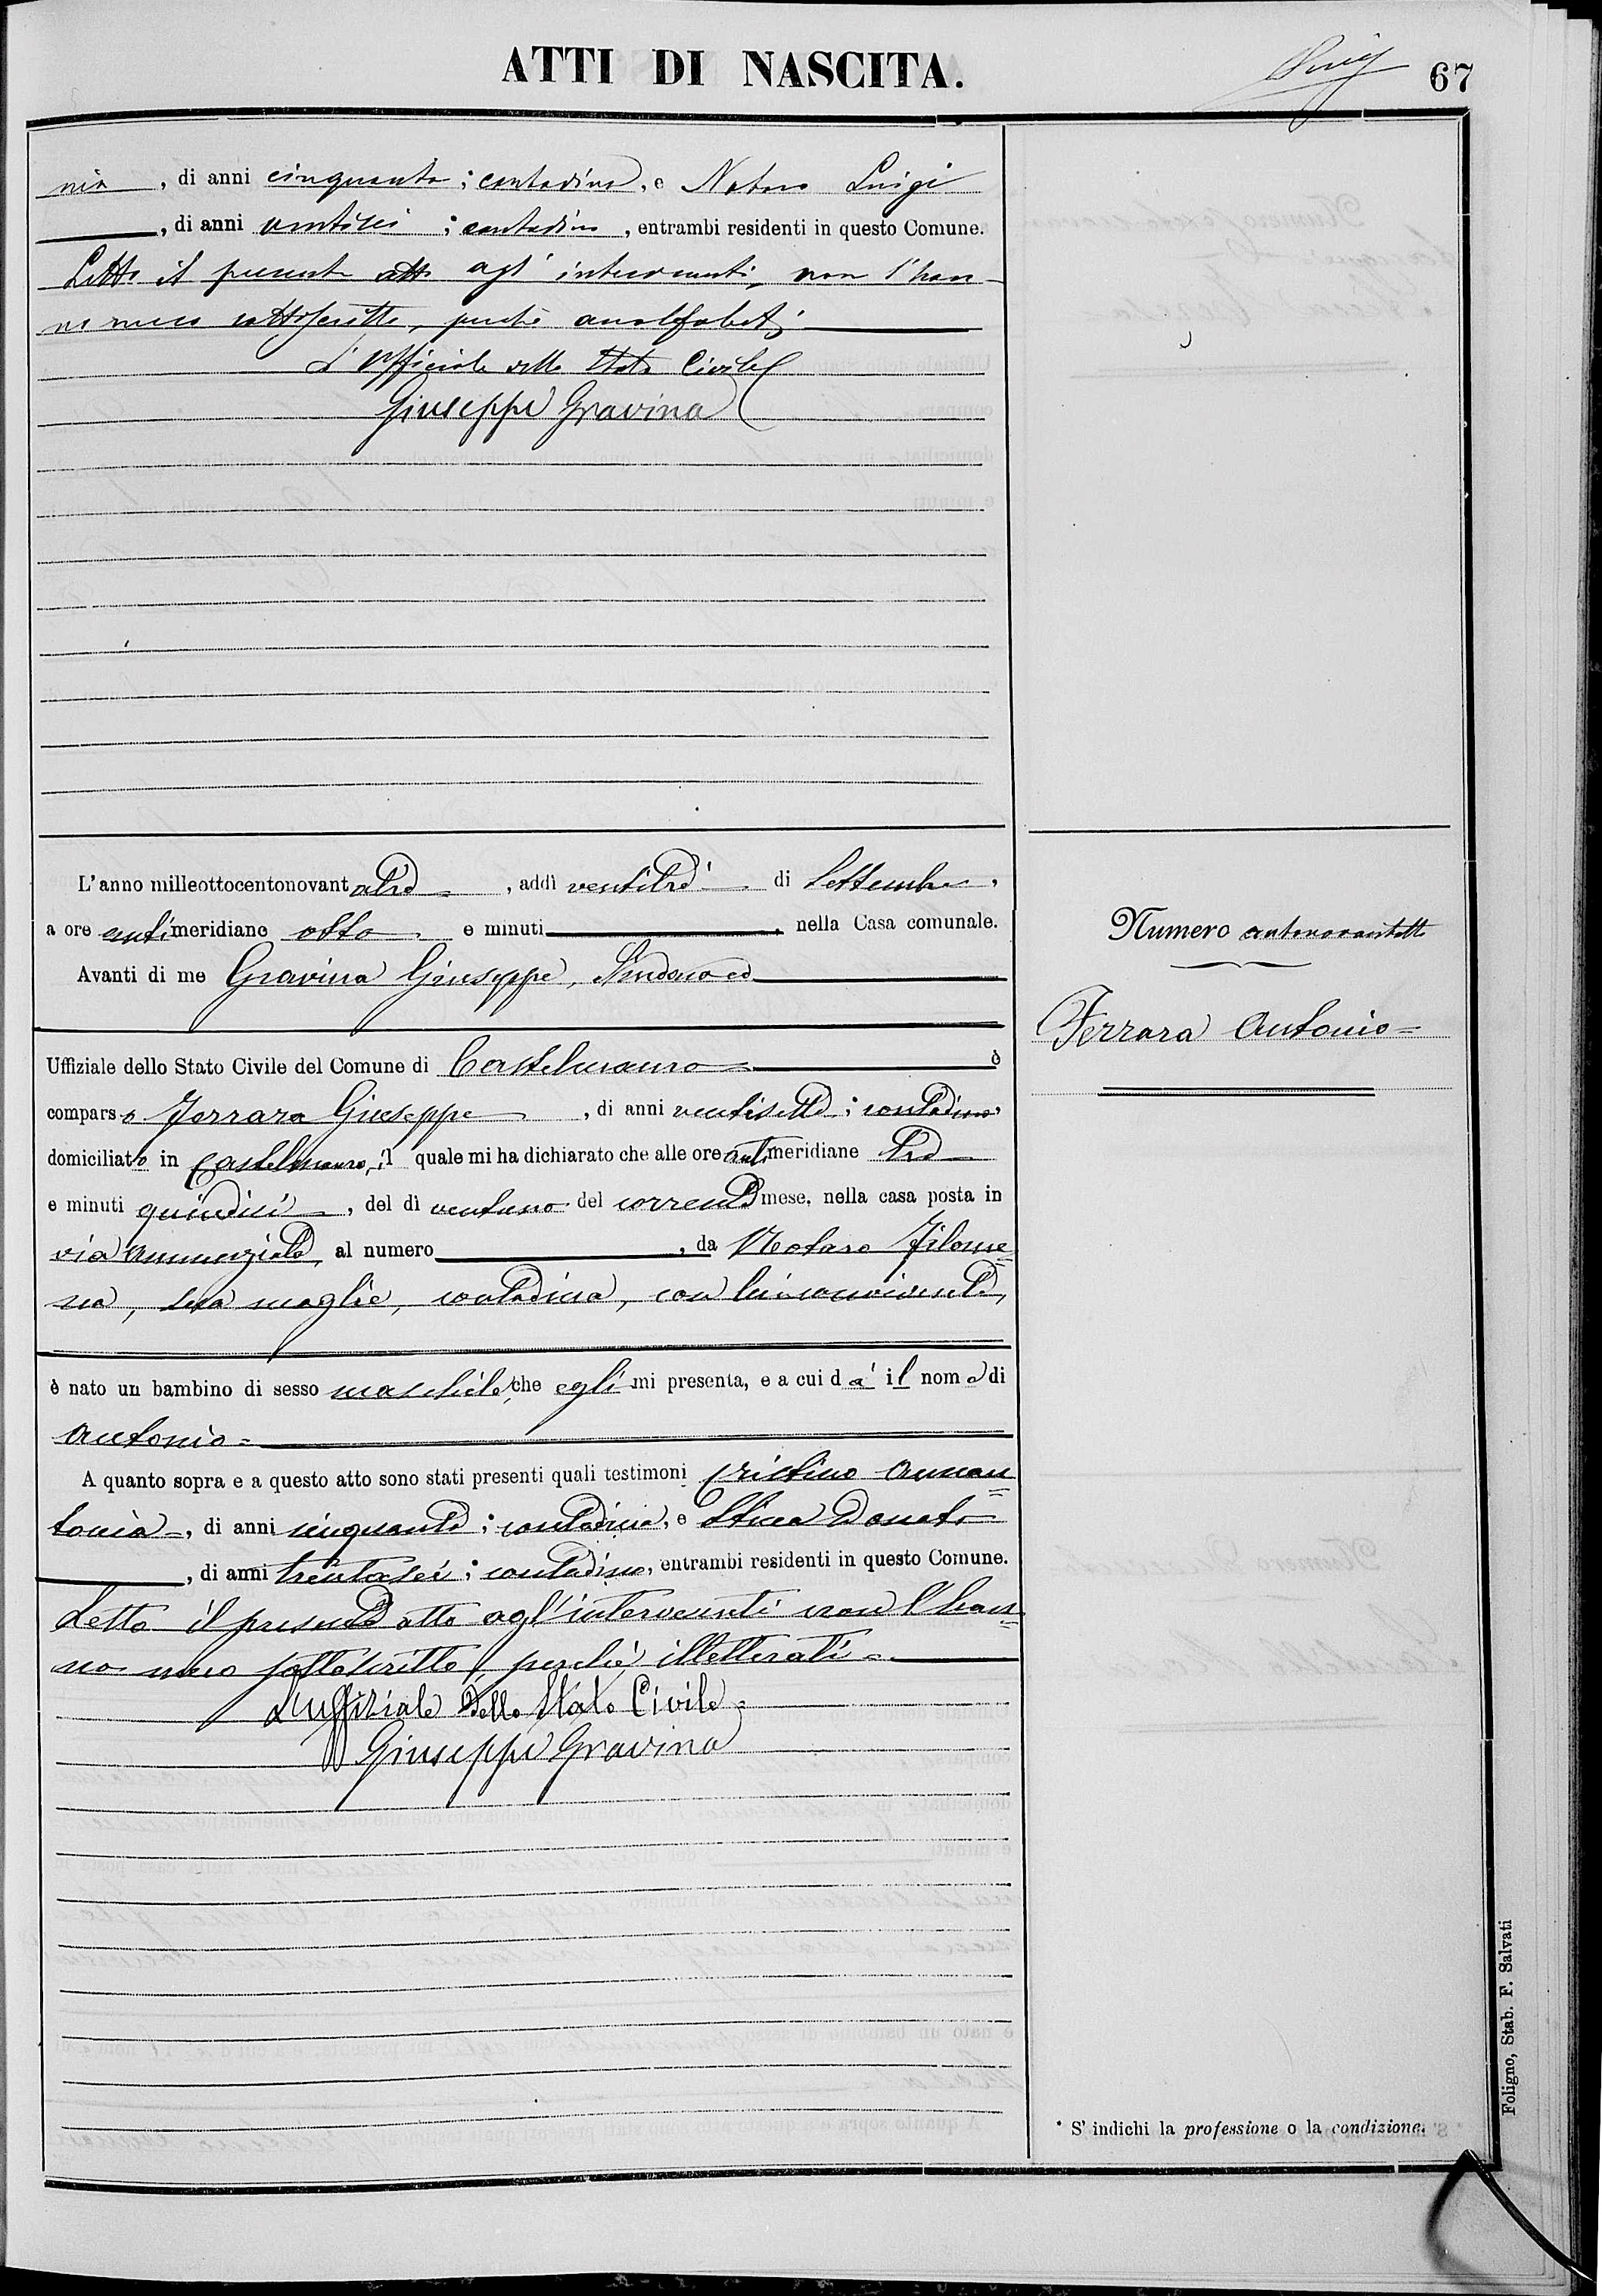 ATTI DI NASCITA.
67
nia, di anni cinquanta; contadina, e Notaro Luigi
, di anni ventisei; contadino, entrambi residenti in questo Comune.
Letto il presente atto agl'intervenuti, non l'han-
no meco sottoscritto, perchè analfabeti
L'Uffiziale dello Stato Civile
Giuseppe Gravina
L'anno milleottocentonovantatre, addì ventitre di Settembre,
a ore antimeridiane otto e minuti , nella Casa comunale.
Avanti di me Gravina Giuseppe, Sindaco ed
Uffiziale dello Stato Civile del Comune di Castelmauro è
comparso Ferrara Giuseppe, di anni ventisette; contadino,
domiciliato in Castelmauro, il quale mi ha dichiarato che alle ore antimeridiane tre
e minuti quindici, del dì ventuno del corrente mese, nella casa posta in
via Annunziata al numero , da Notaro Filome=
na, sua moglie, contadina, con lui convivente,
è nato un bambino di sesso maschile, che egli mi presenta, e a cui dà il nome di
Antonio=
A quanto sopra e a questo atto sono stati presenti quali testimoni Cristino Annan=
tonia, di anni cinquanta; contadina, e Donato
, di anni trentasei; contadino, entrambi residenti in questo Comune.
Letto il presente atto agl'intervenuti non l'han=
no meco sottoscritto, perchè illetterati=
L'uffiziale dello Stato Civile=
Giuseppe Gravina
Numero centonovantotto
Ferrara Antonio=
* S'indichi la professione o la condizione.
Foligno, Stab. F. Salvati